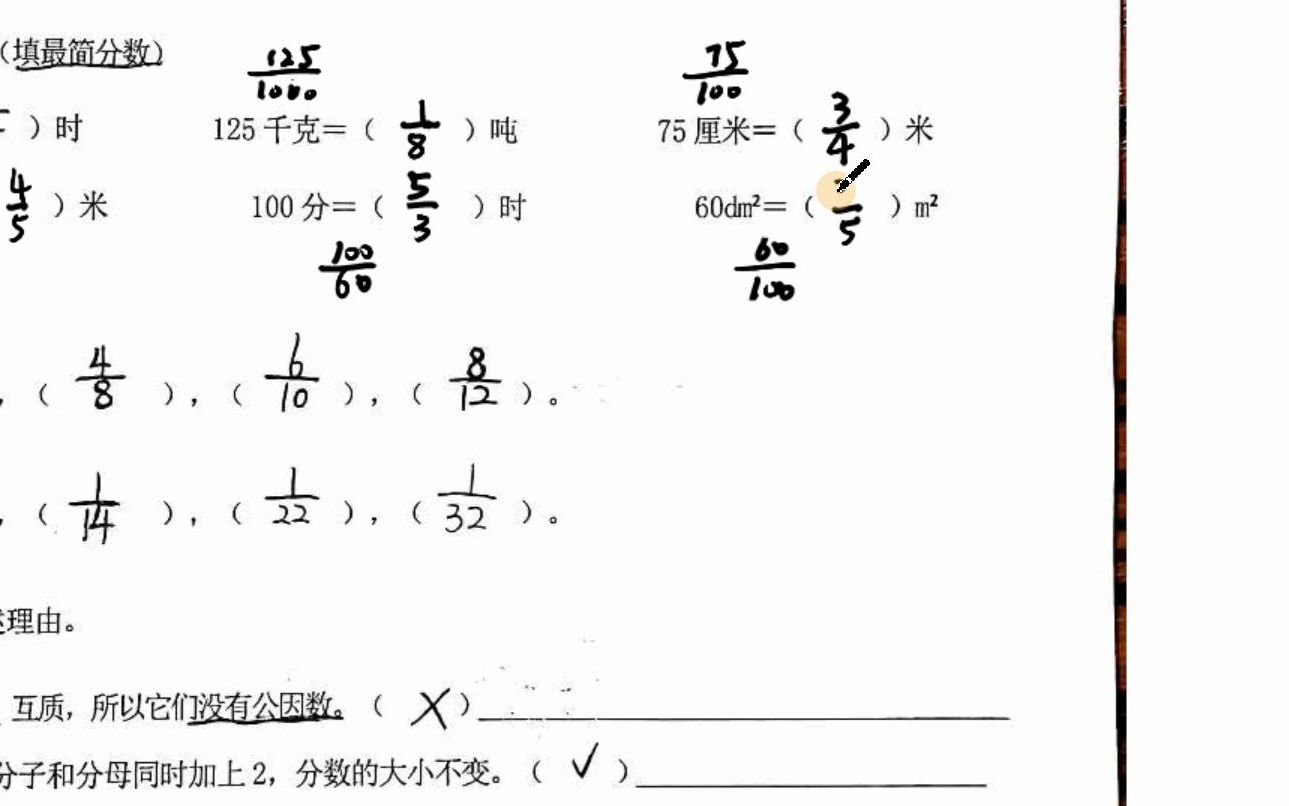 (填最简分数)
125/1000 75/100
)时 125 千克=( 1/8 )吨 75 厘米=( 3/4 )米
4/5 )米 100 分=( 5/3 )时 60dm²=( /5 )m²
100/60 60/100
,( 4/8 ),( 6/10 ),( 8/12 )。
,( 1/14 ),( 1/22 ),( 1/32 )。
理由。
互质,所以它们没有公因数。( X )
分子和分母同时加上 2,分数的大小不变。( ✓ )